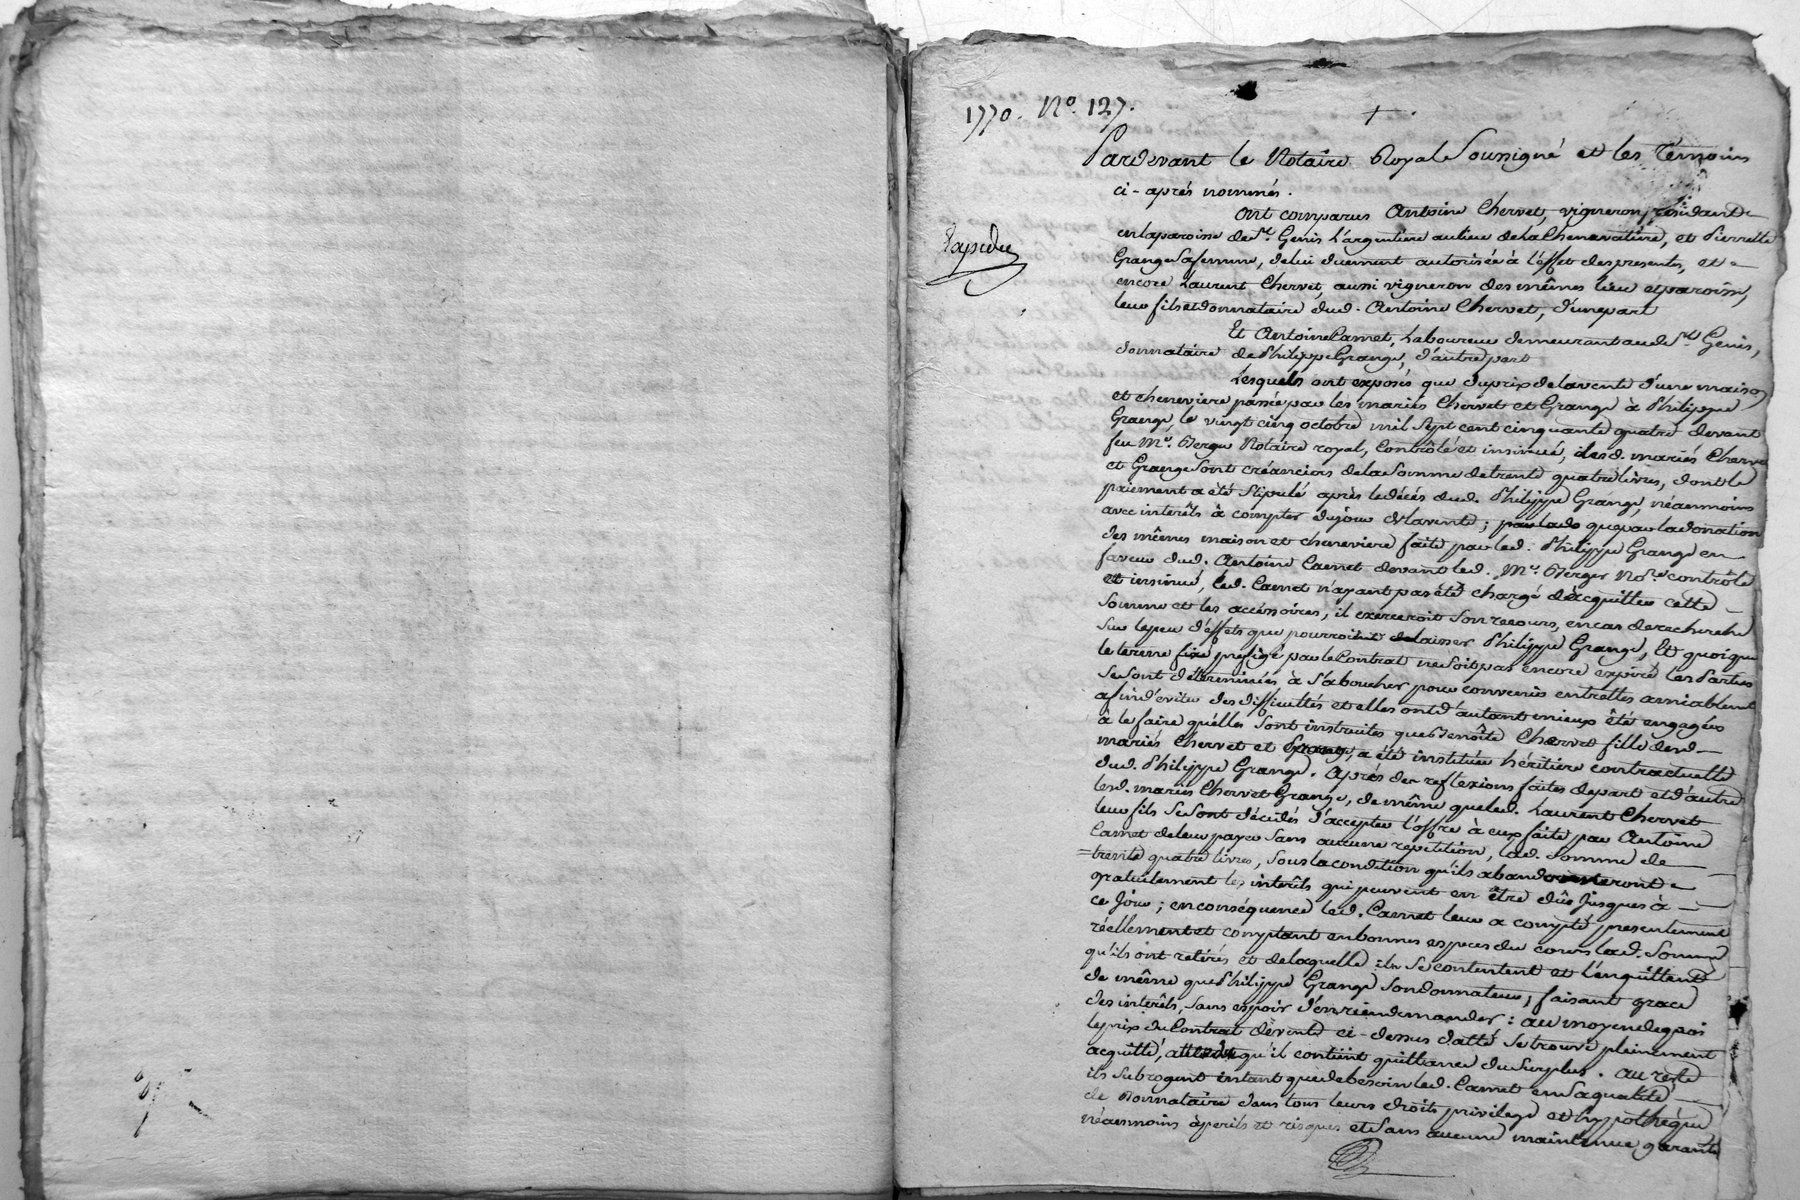 1770. No. 127.
Pardevant le Notaire Royal Soussigné et les Témoins
ci-après nommés.
Ont comparus Antoine Chervet, vigneron, résidant
en la paroisse de St. Genis L'argentiere au lieu de la Chenevatiere, et Pierrette
Grange Sa femme, de lui duement autorisée à l'effet des presentes, et
encore Laurent Chervet, aussi vigneron des mêmes lieu et paroisse,
leur fils et donnataire dud. Antoine Chervet, d'une part
Et Antoine Carret, Laboureur demeurant aud. St. Genis,
donnataire de Philippe Grange, d'autre part
Lesquels ont exposés que du prix de la vente d'une maison
et cheneviere passée par les mariés Chervet et Grange à Philippe
Grange, le vingt cinq octobre mil Sept cent cinquante quatre devant
feu Me. Berger Notaire royal, Contrôlé et insinué, lesd. mariés Chervet
et Grange Sont créanciers de la Somme de trente quatre livres, dont le
paiement a été Stipulé après le décès dud. Philippe Grange, néanmoins
avec interêts à compter du jour de la vente; que par la donation
des mêmes maison et cheneviere faite par led. Philippe Grange en
faveur dud. Antoine Carret devant led. Me. Berger Nore. contrôlé
et insinué, led. Carret n'ayant pas été chargé d'acquitter cette
Somme et les accéssoires, il exerceroit Son recours, en cas de recherche
Sur le peu d'effets que pourroit delaisser Philippe Grange, Et quoique
le terme fixé prefigé par le Contrat ne Soit pas encore expiré les Parties
Se Sont déterminées à S'aboucher pour convenir entr'elles amiablement
afin d'eviter des difficultés et elles ont d'autant mieux été engagées
à le faire qu'elles Sont instruites que Benoîte Chervet fille desd.
mariés Chervet et Grange, a été instituée héritiere contractuelle
dud. Philippe Grange. Après des reflexions faites de part et d'autre
lesd. mariés Chervet Grange, de même que led. Laurent Chervet
leur fils Se Sont décidés d'accepter l'offre à eux faite par Antoine
Carret de leur payer Sans aucune repetition, lad. Somme de
trente quatre livres, Sous la condition qu'ils abandonneront
gratuitement les interêts qui peuvent en être dûs Jusques à
ce Jour; en conséquence led. Carret leur a compté presentement
réellement et comptant en bonnes especes du cours lad. Somme
qu'ils ont retirés et de laquelle ils Se contentent et l'en quittent
de même que Philippe Grange Son donnateur, faisant grace
des interêts, Sans espoir d'en rien demander: au moyen de quoi
le prix du Contrat de vente ci-dessus datté Se trouve pleinement
acquitté, qu'il contient quittance du Surplus. au reste
ils Subrogent intant que de besoin led. Carret en Sa qualité
de Donnataire dans tous leurs droits, privilege et hypothèque
néanmoins à perils et risques et Sans aucune maintenue, garantie